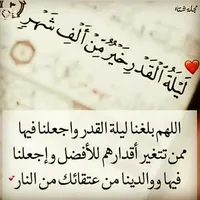 لَيْلَةُ الْقَدْرِ خَيْرٌ مِّنْ أَلْفِ شَهْرٍ
اللهم بلغنا ليلة القدر واجعلنا فيها
ممن تتغير أقدارهم للأفضل وإجعلنا
فيها ووالدينا من عتقائك من النار